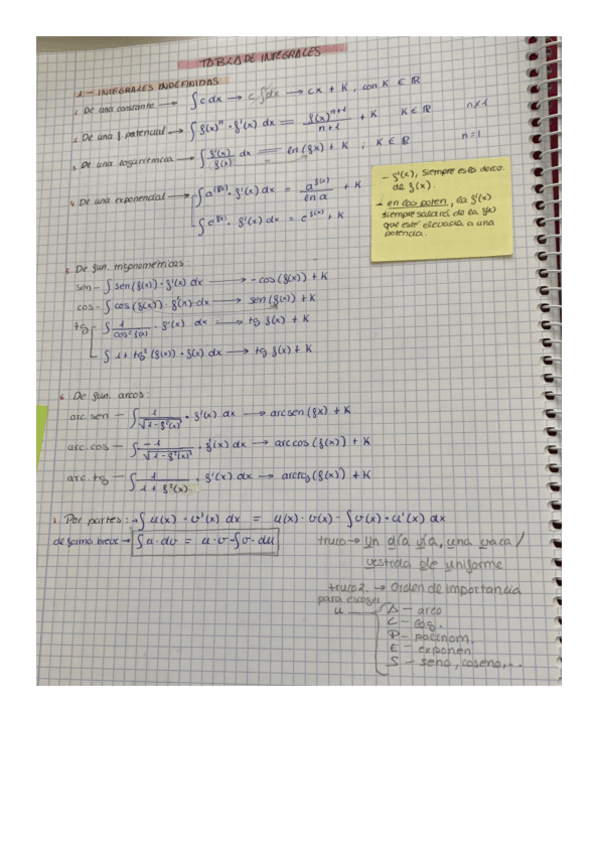 TABLA DE INTEGRALES
1 - INTEGRALES INDEFINIDAS
1. De una constante → ∫c dx → c∫dx → cx + K, con K ∈ ℝ
2. De una f. potencial → ∫f(x)ⁿ · f'(x) dx = f(x)ⁿ⁺¹ / n+1 + K K ∈ ℝ n≠1
3. De una logarítmica → ∫ f'(x) / f(x) dx = ln(fx) + K ; K ∈ ℝ n=1
4. De una exponencial → ∫a^f(x) · f'(x) dx = a^f(x) / ln a + K
∫e^f(x) · f'(x) dx = e^f(x) + K
- f'(x), siempre es la deriv.
de f(x).
- en las poten, la f'(x)
siempre saldrá de la f(x)
que esté elevada a una
potencia.
5. De fun. trigonométricas:
sen - ∫sen(f(x)) · f'(x) dx → -cos(f(x)) + K
cos - ∫cos(f(x)) · f'(x) · dx → sen(f(x)) + K
tg - ∫ 1 / cos² f(x) · f'(x) dx → tg f(x) + K
∫1 + tg²(f(x)) · f(x) dx → tg f(x) + K
6. De fun. arcos:
arc sen - ∫ 1 / √1-f²(x) · f'(x) dx → arcsen(fx) + K
arc.cos - ∫ -1 / √1-f²(x) · f'(x) dx → arccos(f(x)) + K
arc.tg - ∫ 1 / 1+f²(x) · f'(x) dx → arctg(f(x)) + K
7. Por partes: → ∫u(x) · v'(x) dx = u(x) · v(x) - ∫v(x) · u'(x) dx
de forma breve → ∫u·dv = u·v-∫v·du
truco → un día vía, una vaca /
vestida de uniforme
truco 2. → Orden de importancia
para escoger
u
A - arco
L - log.
P - polinom.
E - exponen
S - seno, coseno,...